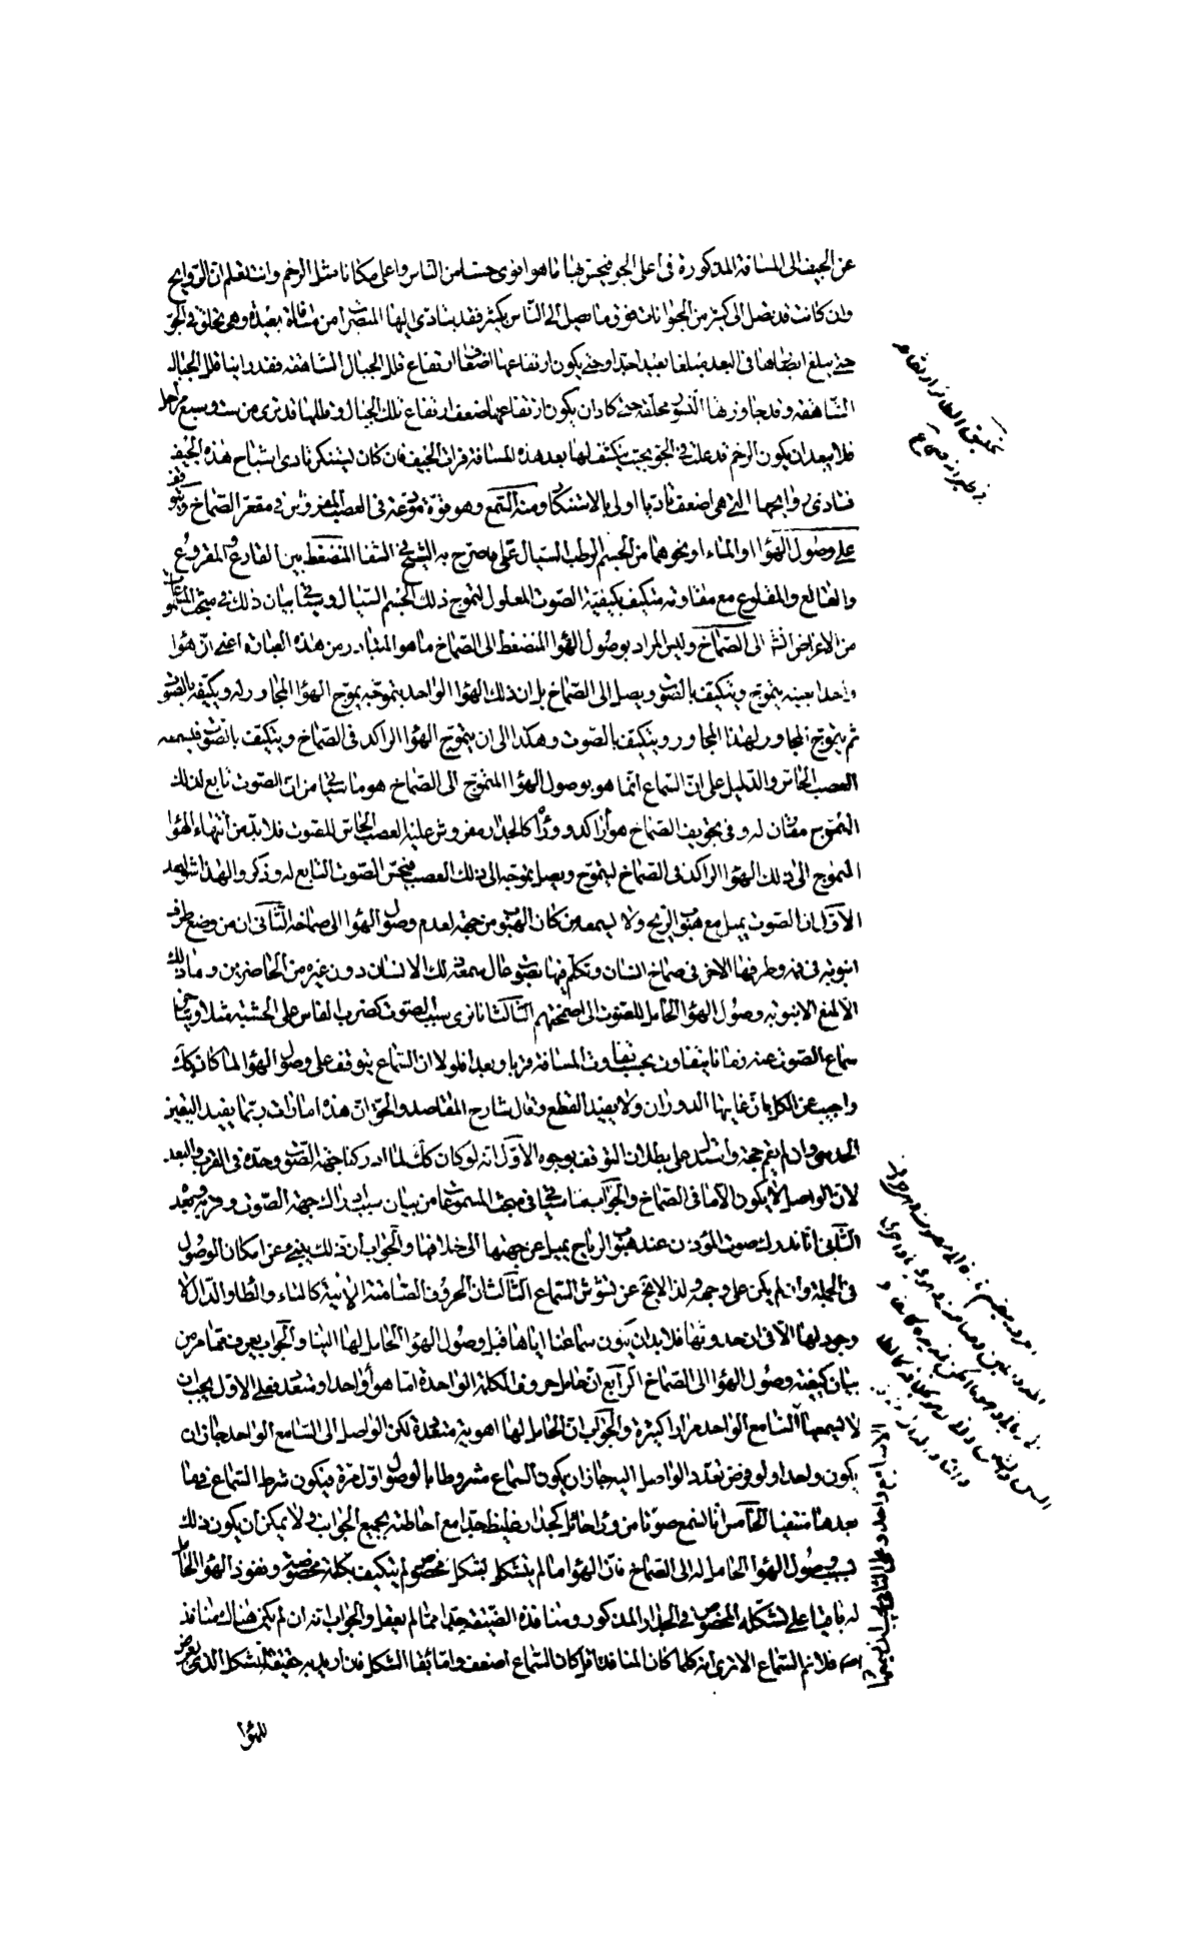 عن الجيف الى المسافة المذكورة فى اعلى الجو فيحس بها ما هو اقوى حسا من الناس واعلى مكانا مثل الرخم وانت تعلم ان الروايح
وان كانت قد تصل الى كثير من الحيوانات فوق ما تصل الى الناس بكثير فقد يتادى اليها المبصرات من مسافة بعيدة وهى تحلق فى الجو
حتى يبلغ ابصارها فى البعد مبلغا بعيدا جدا وحتى يكون ارتفاعها اضعاف ارتفاع قلل الجبال الشاهقة فقد راينا قلل الجبال
الشاهقة وقد جاوزتها النسور محلقة حتى كاد ان يكون ارتفاعها ضعف ارتفاع تلك الجبال وقللها قد ترى من ست وسبع مراحل
فلا يبعد ان يكون الرخم قد علت فى الجو بحيث ينكشف لها بعد هذه المسافة فرات الجيف فان كان يستنكر تادى اشباح هذه الجيف
فتادى روايحها التى هى اضعف تاديا اولى بالاستنكار ومنه السمع وهو قوة مودعة فى العصب المفروش فى مقعر الصماخ ويتوقف
على وصول الهواء او الماء او نحوهما من الجسم الرطب السيال على ما صرح به الشيخ فى الشفا المنضغط بين القارع والمقروع
والقالع والمقلوع مع مقاومة متكيف بكيفية الصوت المعلول لتموج ذلك الجسم السيال وسيجى بيان ذلك فى مبحث المسموعات
من الاعراض انش الى الصماخ وليس المراد بوصول الهواء المنضغط الى الصماخ ما هو المتبادر من هذه العبارة اعنى ان هواء
واحدا بعينه يتموج ويتكيف بالصوت ويصل الى الصماخ بل ان ذلك الهواء الواحد بتموجه يموج الهواء المجاور له ويكيفه بالصوت
ثم يتموج المجاور لهذا المجاور ويتكيف بالصوت وهكذا الى ان يتموج الهواء الراكد فى الصماخ ويتكيف بالصوت فيسمعه
العصب الحاس والدليل على ان السماع انما هو بوصول الهواء المتموج الى الصماخ هو ما سيجى من ان الصوت تابع لذلك
التموج مقارن له وفى تجويف الصماخ هواء راكد ووراءه كالجدار مفروش عليه العصب الحاس للصوت فلا بد من انتهاء الهواء
المتموج الى ذلك الهواء الراكد فى الصماخ ليتموج ويصل تموجه الى ذلك العصب فيحس الصوت التابع له وذكروا لهذا شواهد
الاول ان الصوت يميل مع هبوب الريح ولا يسمعه من كان الهبوب من جهته لعدم وصول الهواء الى صماخه الثانى ان من وضع طرف
انبوبة فى فمه وطرفها الاخر فى صماخ انسان وتكلم فيها بصوت عال سمعه ذلك الانسان دون غيره من الحاضرين وما ذلك
الا لمنع الانبوبة وصول الهواء الحامل للصوت الى اصمختهم الثالث انا نرى سبب الصوت كضرب الفاس على الخشبة مثلا ويتاخر
سماع الصوت عنه زمانا يتفاوت بحسب تفاوت المسافة قربا وبعدا فلولا ان السماع يتوقف على وصول الهواء لما كان كذلك
واجيب عن الكل بان غايتها الدوران ولا يفيد القطع وقال شارح المقاصد والحق ان هذه امارات ربما يفيد اليقين
الحدسى وان لم يقم حجة واستدل على بطلان التوقف بوجوه الاول انه لو كان كذلك لما ادركنا جهة الصوت وحده فى القرب والبعد
لان الواصل لا يكون الا ما فى الصماخ والجواب ما سيجى فى مبحث المسموعات من بيان سبب ادراك جهة الصوت وقربه وبعده
الثانى انا ندرك صوت المؤذن عند هبوب الرياح يميل عن جهتها الى خلافها والجواب ان ذلك ينبىء عن امكان الوصول
فى الجملة وان لم يكن على وجهه ولذا لا يخ عن تشوش السماع الثالث ان الحروف الصامتة الانية كالتاء والطاء والدال لا
وجود لها الا فى ان حدوثها فلا بد ان يكون سماعنا اياها قبل وصول الهواء الحامل لها الينا والجواب يعرف مما مر من
بيان كيفية وصول الهواء الى الصماخ الرابع ان حامل حروف الكلمة الواحدة اما هواء واحد او متعدد فعلى الاول يجب ان
لا يسمعها السامع الواحد مرارا كثيرة والجواب ان الحامل لها اهوية متعددة لكن الواصل الى السامع الواحد جاز ان
يكون واحدا ولو فرض تعدد الواصل اليه جاز ان يكون السماع مشروطا بالوصول اول مرة فيكون شرط السماع فيما
بعدها منتفيا الخامس انا نسمع صوتا من وراء حائل كجدار غليظ جدا مع احاطته بجميع الجوانب ولا يمكن ان يكون ذلك
بسبب وصول الهواء الحامل له الى الصماخ فان الهواء ما لم يتشكل بشكل مخصوص لم يتكيف بكلمة مخصوصة ونفوذ الهواء الحامل
له باقيا على تشكله المخصوص فى الجدار المذكور ومنافذه الضيقة جدا مما لم يعقل والجواب انه ان لم يكن هناك منافذ
اصلا فلا نم السماع الا ترى انه كلما كان المنافذ اقل كان السماع اضعف واما بقاء الشكل فان اريد به حقيقة التشكل الذى يعرض
للهواء
الا سامع واحد وعلى الثانى يجب ان يسمعها